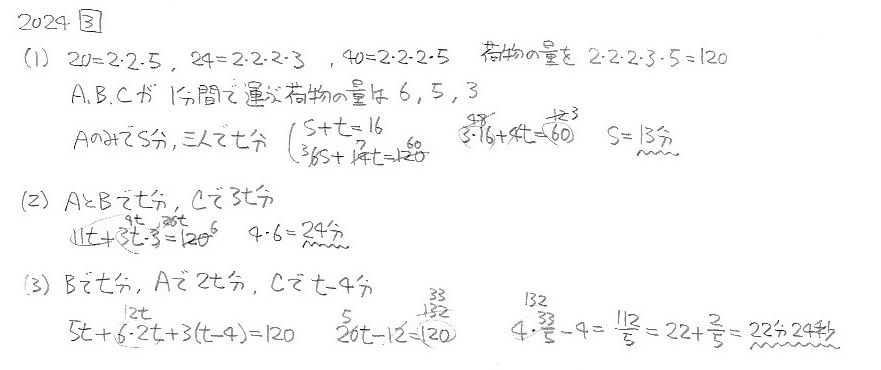 2024 3
(1) 20=2・2・5, 24=2・2・2・3, 40=2・2・2・5 荷物の量を 2・2・2・3・5=120
A,B,Cが 1分間で運ぶ荷物の量は 6, 5, 3
AのみでS分,三人でt分 S+t=16 3・16+4t=60 S=13分
6S+14t=120
(2) AとBでt分, Cで3t分
11t+3t・3=120 4・6=24分
(3) Bでt分, Aで2t分, Cでt-4分
5t+6・2t+3(t-4)=120 20t-12=120 4・33/5-4=112/5=22+2/5=22分24秒